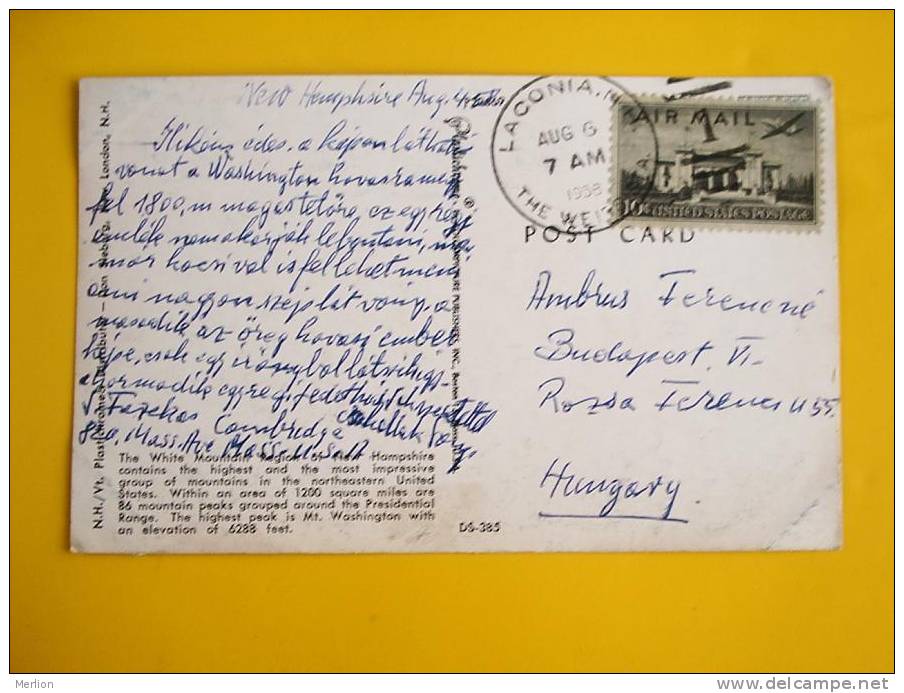 New Hempshsire Aug. 4
édes. a képen látható
vonat a Washington
fel 1800, m magas tetőre, ez egy régi
emlék nem akarják lebontani,
már kocsival is fel lehet menni
ami nagyon szép látvány. a
második az öreg havasi ember
képe, csak egy irányból látszik így
harmadik egy régi fedett híd
Fazekas Cambridge
Mass. Ave Mass. U.S.A
The White Mountain Region of New Hampshire
contains the highest and the most impressive
group of mountains in the northeastern United
States. Within an area of 1200 square miles are
86 mountain peaks grouped around the Presidential
Range. The highest peak is Mt. Washington with
an elevation of 6288 feet.
DS-385
LACONIA, N
AUG 6
7 AM
1958
THE WEIR
AIR MAIL
10¢ UNITED STATES POSTAGE
POST CARD
Ambrus Ferencné
Budapest. VI.
Rozsa Ferenc u 55.
Hungary.
Merlion
www.delcampe.net